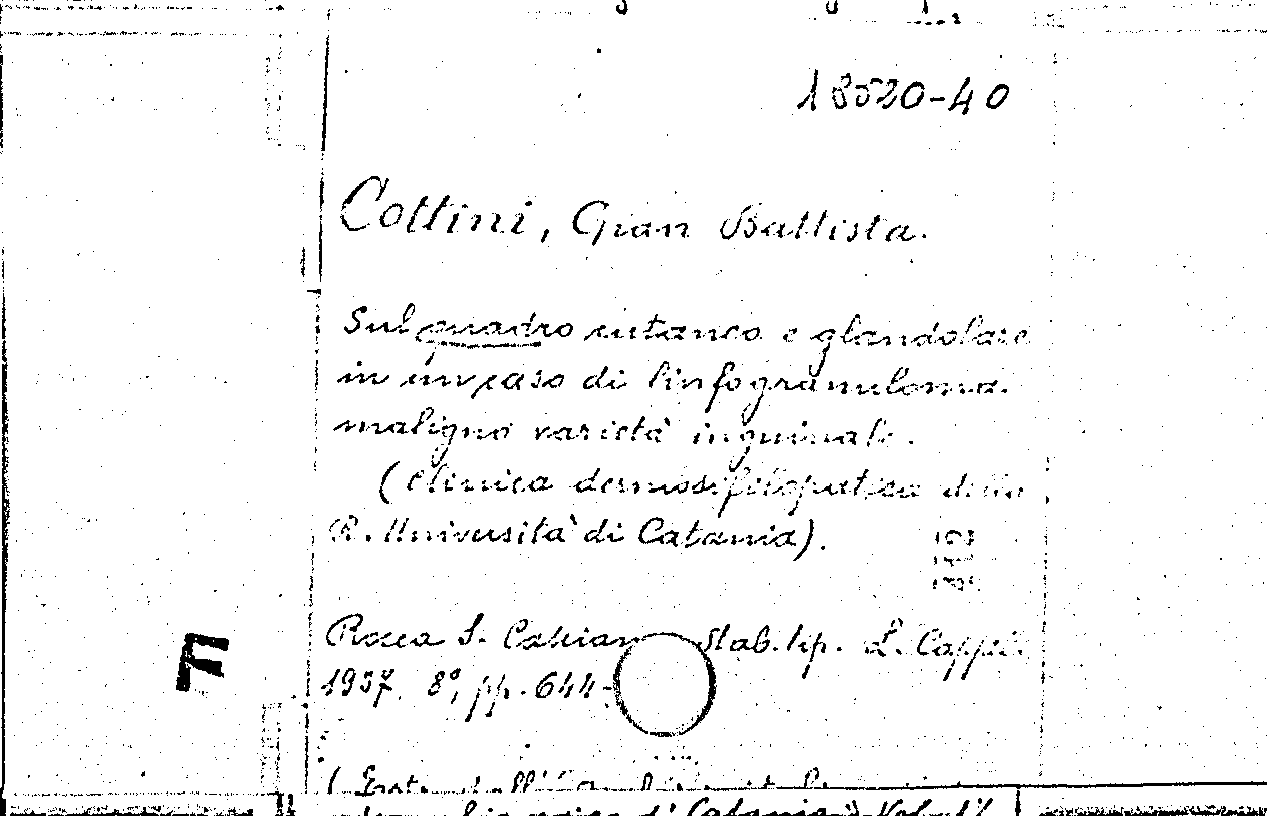 18520-40
Cottini, Gian Battista.
Sul quadro cutaneo e glandolare
in un caso di linfogranuloma
maligno varietà inguinale.
(Clinica dermosifilopatica della
R. Università di Catania).
Rocca S. Casciano Stab. tip. L. Cappelli
1937. 8°, pp. 644-
F
di Catania